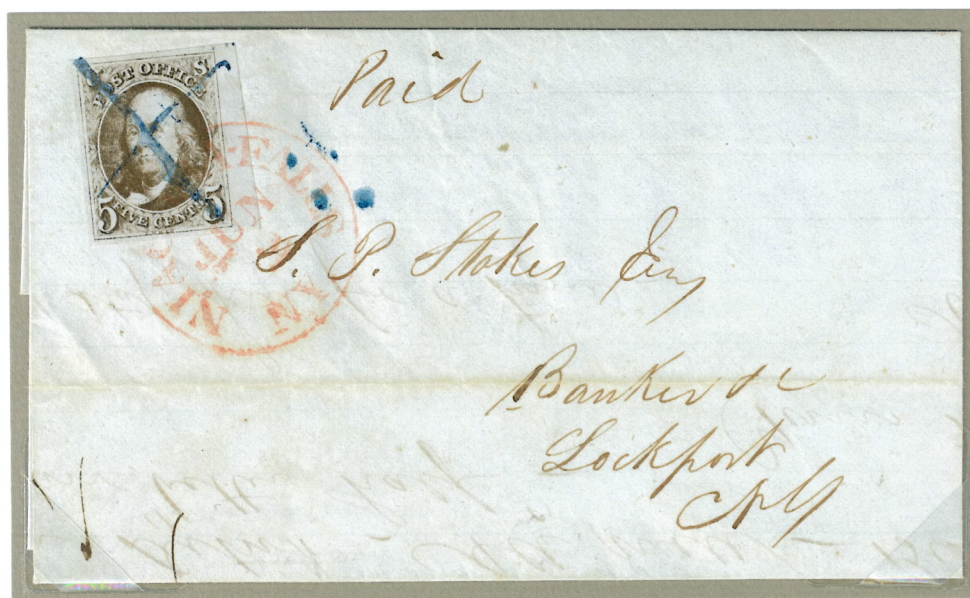 POST OFFICE
FIVE CENTS
5 5
Paid
NIAGARA-FALLS
JUN
N.Y.
S. P. Stokes Esq
Banker &c
Lockport
NY